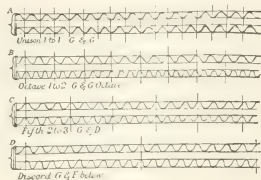 A
Unison 1 to 1 G & G
B
Octave 1 to 2 G & G Octave
C
Fifth 2 to 3 G & D
D
Discord G & F below